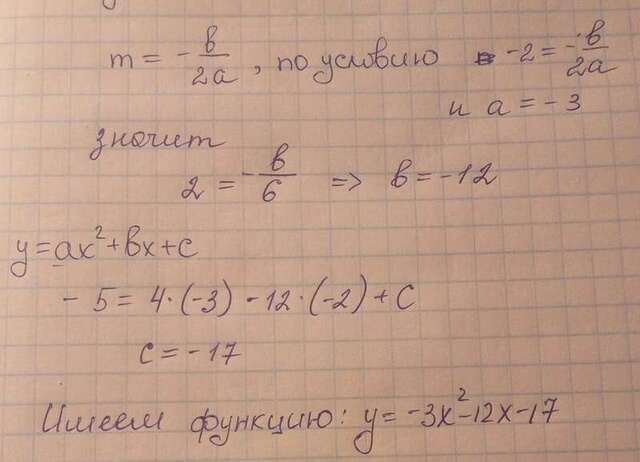 m = - в/2a , по условию -2 = - в/2a
и a = - 3
значит
2 = - в/6 => в = -12
y = ax² + вx + c
- 5 = 4·(-3) - 12·(-2) + C
c = - 17
Имеем функцию: y = -3x² - 12x - 17